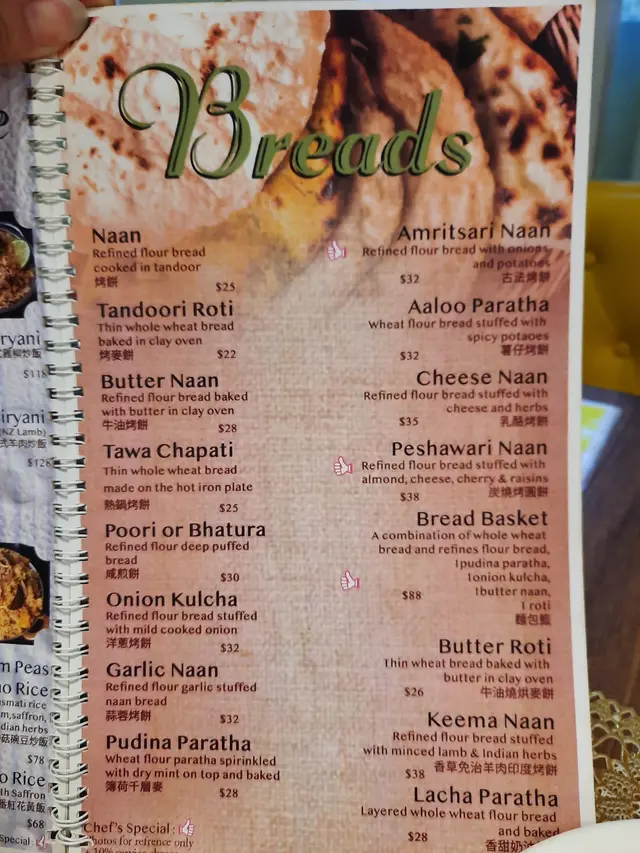 Breads
Naan
Refined flour bread
cooked in tandoor
烤餅
$25
Tandoori Roti
Thin whole wheat bread
baked in clay oven
烤麥餅
$22
Butter Naan
Refined flour bread baked
with butter in clay oven
牛油烤餅
$28
Tawa Chapati
Thin whole wheat bread
made on the hot iron plate
熱鍋烤餅
$25
Poori or Bhatura
Refined flour deep puffed
bread
咸煎餅
$30
Onion Kulcha
Refined flour bread stuffed
with mild cooked onion
洋蔥烤餅
$32
Garlic Naan
Refined flour garlic stuffed
naan bread
蒜蓉烤餅
$32
Pudina Paratha
Wheat flour paratha spirinkled
with dry mint on top and baked
薄荷千層麥
$28
Chef's Special :
Photos for refrence only
Amritsari Naan
Refined flour bread with onions
and potatoes
$32 古法烤餅
Aaloo Paratha
Wheat flour bread stuffed with
spicy potaoes
$32 薯仔烤餅
Cheese Naan
Refined flour bread stuffed with
cheese and herbs
$35 乳酪烤餅
Peshawari Naan
Refined flour bread stuffed with
almond, cheese, cherry & raisins
$38 炭燒烤圓餅
Bread Basket
A combination of whole wheat
bread and refines flour bread,
1pudina paratha,
1onion kulcha,
$88 1butter naan,
1 roti
麵包籃
Butter Roti
Thin wheat bread baked with
butter in clay oven
$26 牛油燒烘麥餅
Keema Naan
Refined flour bread stuffed
with minced lamb & Indian herbs
$38 香草免治羊肉印度烤餅
Lacha Paratha
Layered whole wheat flour bread
and baked
$28 香甜奶油
iryani
$118
iryani
(NZ Lamb)
式羊肉炒飯
$128
m Peas
uo Rice
smati rice
m,saffron,
dian herbs
菇碗豆炒飯
$78
o Rice
th Saffron
番紅花黃飯
$68
Special :